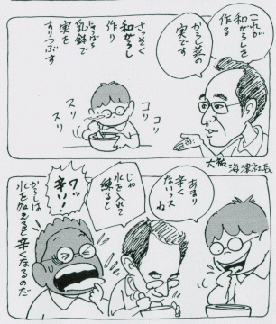 これが
和がらしを
作る
からし菜の
実です
さっそく
和がらし
作り
乳鉢で
実を
すりつぶす
コリ
コリ
スリ
スリ
大阪
海津社長
あまり
辛く
ないっス
ね
じゃ
水を入れて
練ると
ワッ
辛い!!
からしは
水を加えると
辛くなるのだ